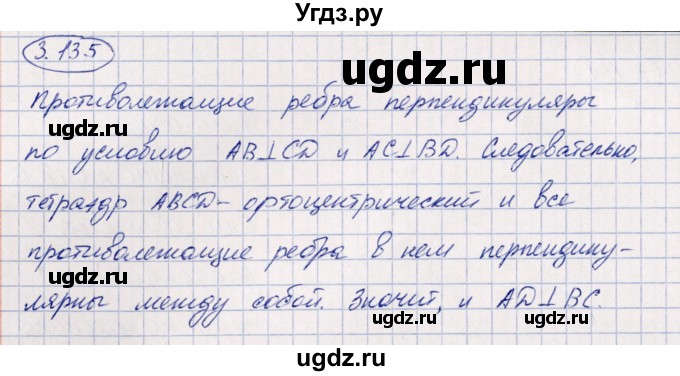 Угдз.ру
3.135
ugdz.ru
Противолежащие ребра перпендикуляры
ugdz.ru
по условию AB⊥CD и AC⊥BD. Следовательно,
ugdz.ru
тетраэдр ABCD - ортоцентрический и все
противолежащие ребра в нем перпендику-
ugdz.ru
лярны между собой. Значит, и AD⊥BC.
ugdz.ru ugdz.ru
ugdz.ru